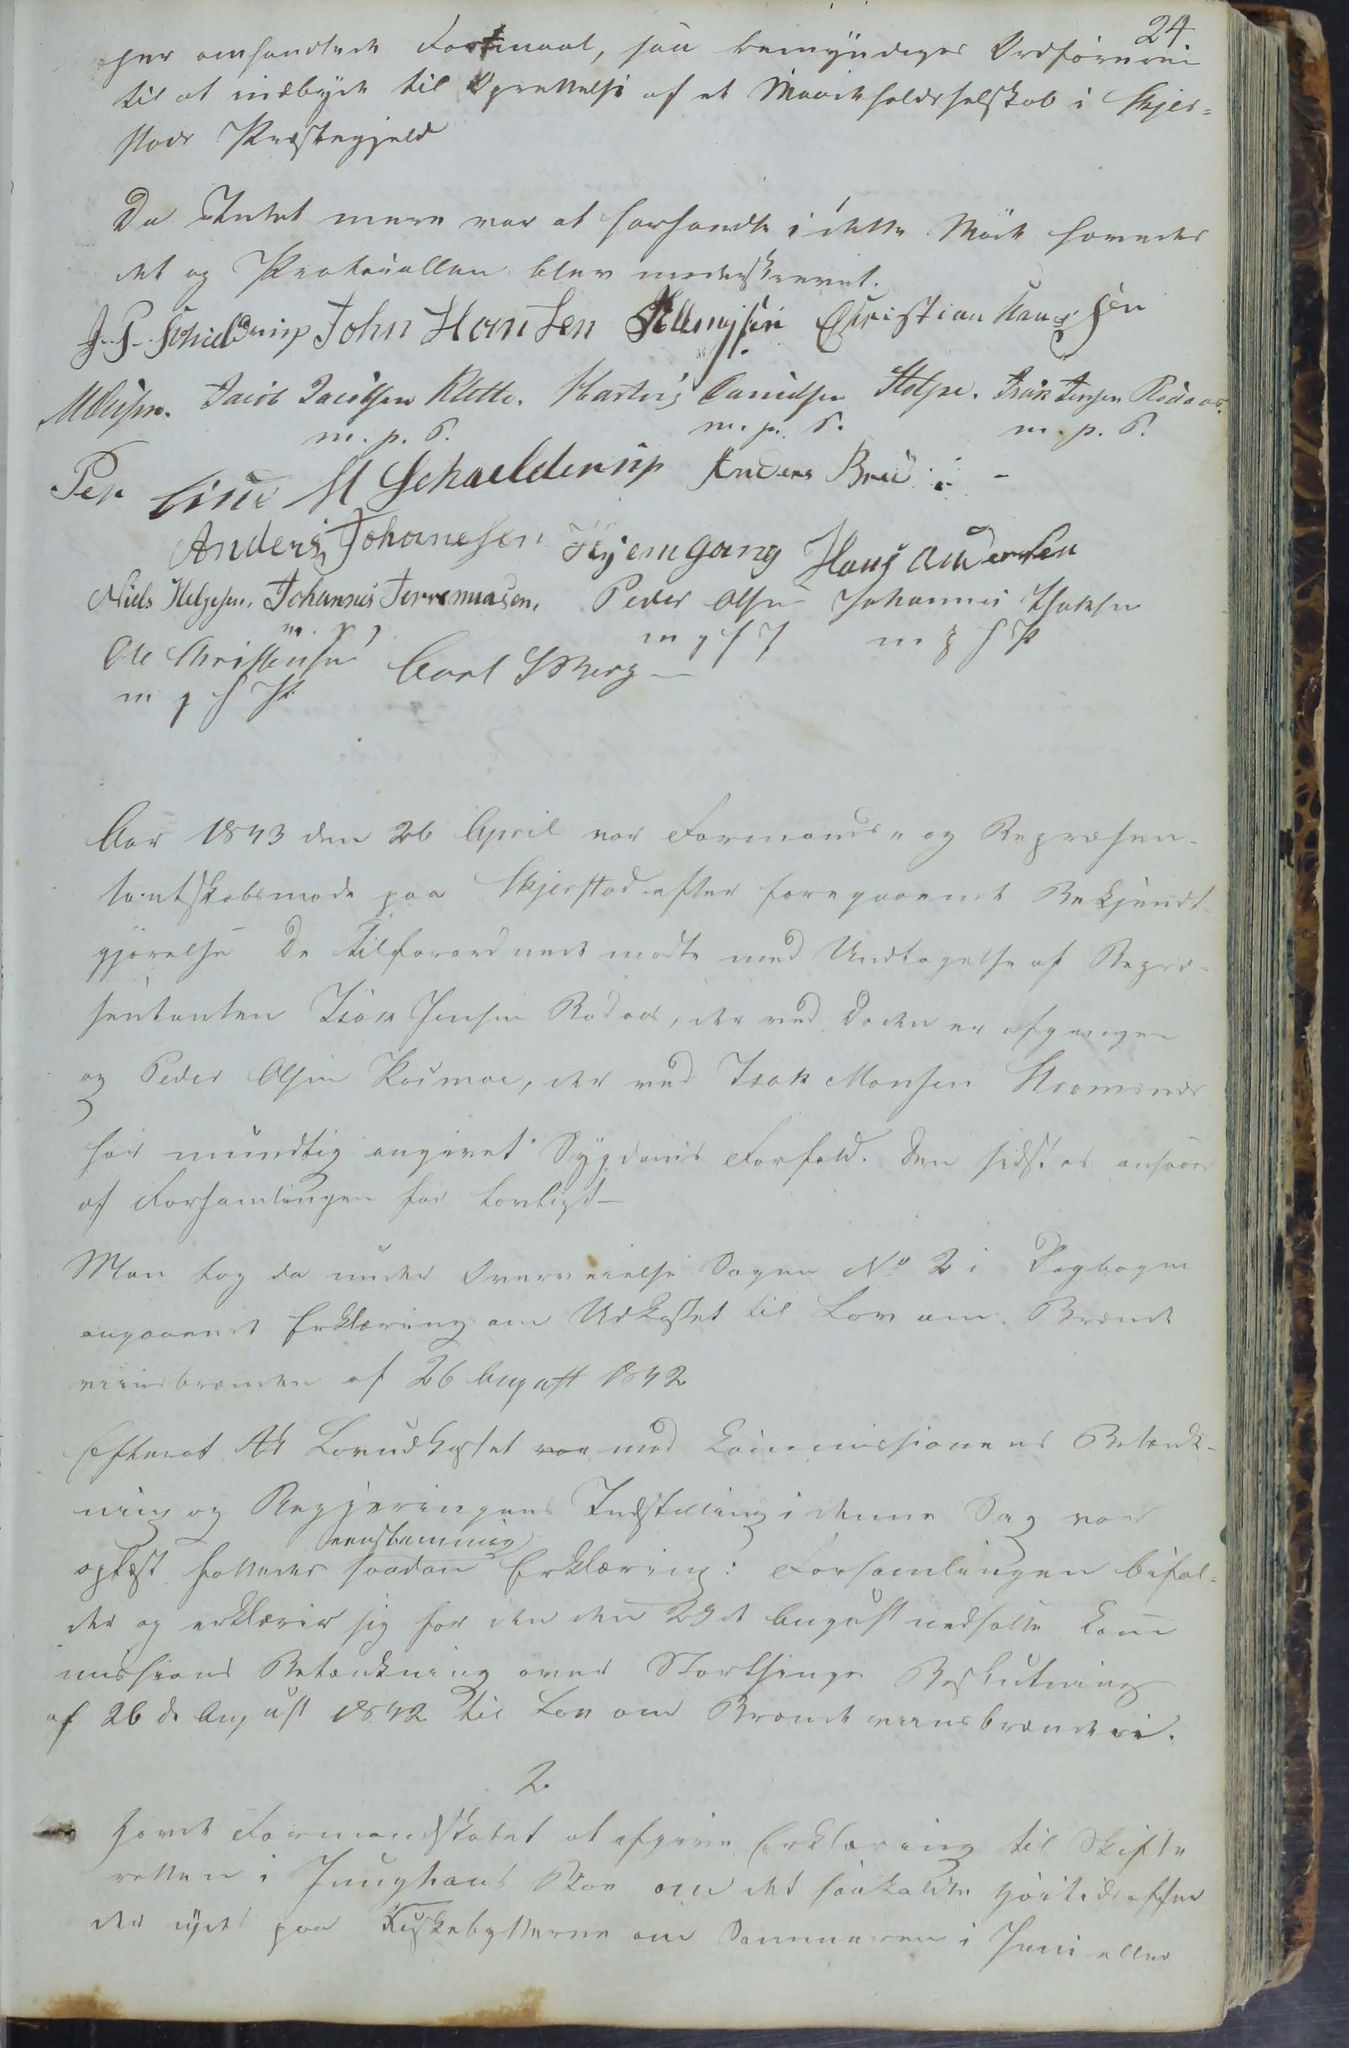 24
her omhandlede Formaal, saa bemyndiges Ordføreren
til at indbyde til Oprettelse af et Maadeholdsselskab i Skjer-
stads Præstegjeld
Da Intet mere var at forhandle i dette Möde hævedes
det og Protocollen blev underskrevet.
J. P. Schjelderup John Hansen Ellingsen Christian Hansen
MOlsen. Jacob Jacobsen Klette. Hartvig Danielsen Isak Jensen Rödaas.
m. p. P. m. p. P. m. p. P.
Per Lind M Schjelderup Anders Bred
Anders Johanesen Hjemgang Hans Andersen
Niels Helgesen. Johannes Jerremiasen. Peder Olsen Johannes Isaksen
m. p. P m p f P m p f P
Ole Christensen Carl SBerg
m p f P
Aar 1843 den 26 April var Formands- og Repræsen-
tantskabsmøde paa Skjerstad efter foregaaende Bekjendt-
gjörelse De Tilforordnede mødte med Undtagelse af Repræ-
sentanten Isak Jensen Rödaas, der ved Døden er afgangen
og Peder Olsen Kosmoe, der ved Isak Monsen
har mundtlig angivet Sygdoms Forfald. Den sidste ansaaes
af Forsamlingen for lovligt -
Man tog da under Overveielse Sagen No 2 i Dagbogen
angaaende Erklæring om Udkastet til Lov om Brænde
viinsbrænden af 26 August 1842
Efterat At Lovudkastet var med Commissionens Betænk-
ning og Regjeringens Indstilling i denne Sag var
eenstemmig
oplæst fattedes saadan Erklæring: Forsamlingen bifal-
der og erklærer sig for den den 29de August nedsatte Com
missions Betænkning over Storthings Beslutning
af 26de August 1842 til Lov om Brændeviinsbrænderi.
2.
havde Formandskabet at afgive Erklæring til Skifte
retten i Junghans Boe om det saakaldte Höitidsoffer
der ydes paa Kirkebytterne om Sommeren i Juni eller